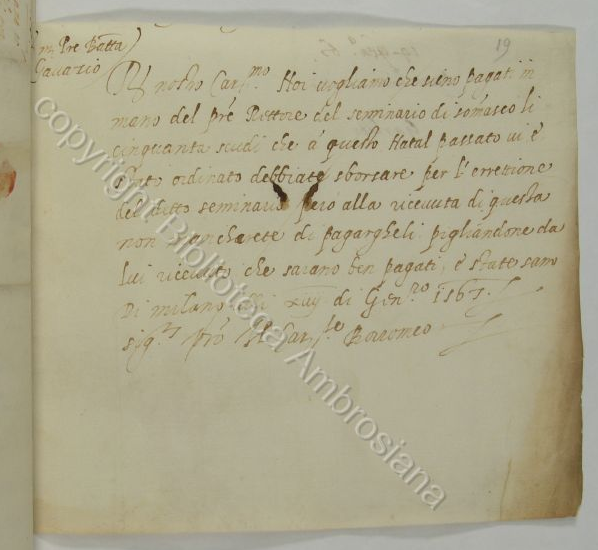 19
m. Pre Batta
Cavatio
R nostro Car.mo Noi vogliamo che sieno pagati in
mano del pré Rettore del seminario di somasco li
cinquanta scudi che á questo Natal passato vi é
stato ordinato debbiate sborsare per l'errettione
del ditto seminario però alla ricevuta di questa
non mancherete di pagargheli pigliandone da
lui ricevuto che sarano ben pagati, é state sano
Di milano di Gen.ro 1567.
Il Car.le Borromeo
copyright Biblioteca Ambrosiana